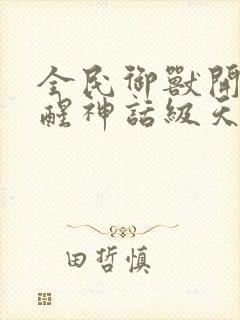 全民御獸開
醒神話級天
田哲慎